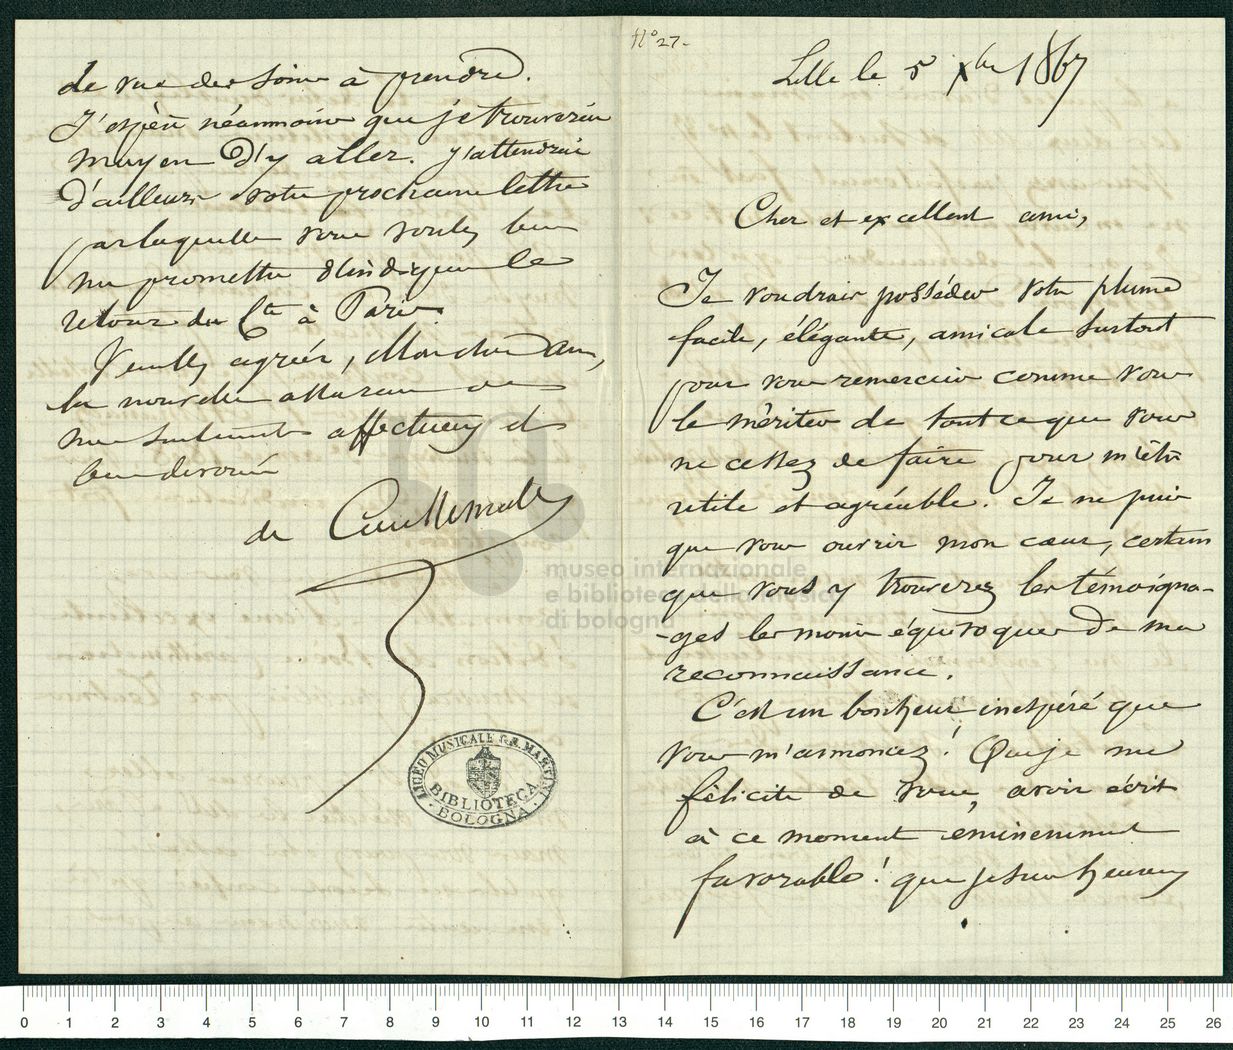 N° 27.
Lille le 5 Xbre 1867
Cher et excellent ami,
Je voudrais posséder votre plume
facile, élégante, amicale surtout
pour vous remercier comme vous
le méritez de tout ce que vous
ne cessez de faire pour m'être
utile et agréable. Je ne puis
que vous ouvrir mon cœur, certain
que vous y trouverez les témoigna-
-ges les moins équivoques de ma
reconnaissance.
C'est un bonheur inespéré que
vous m'annoncez! Que je me
félicite de vous avoir écrit
à ce moment éminemment
favorable! que je suis heureux
de vue des soins à prendre.
J'espère néanmoins que je trouverai
moyen d'y aller. J'attendrai
d'ailleurs votre prochaine lettre
par laquelle vous voulez bien
me promettre d'indiquer le
retour du Cte à Paris.
Veuillez agréer, Mon cher Ami,
la nouvelle assurance de
mes sentiments affectueux et
bien dévoués
de Coussemaker
LICEO MUSICALE G.B. MARTINI
BIBLIOTECA
BOLOGNA
museo internazionale
e biblioteca della musica
di bologna
0 1 2 3 4 5 6 7 8 9 10 11 12 13 14 15 16 17 18 19 20 21 22 23 24 25 26